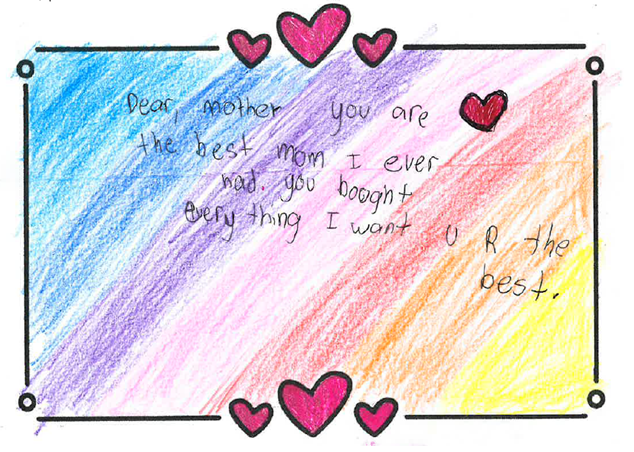 Dear, mother you are
the best mom I ever
had. you boaght
every thing I want U R the
best.